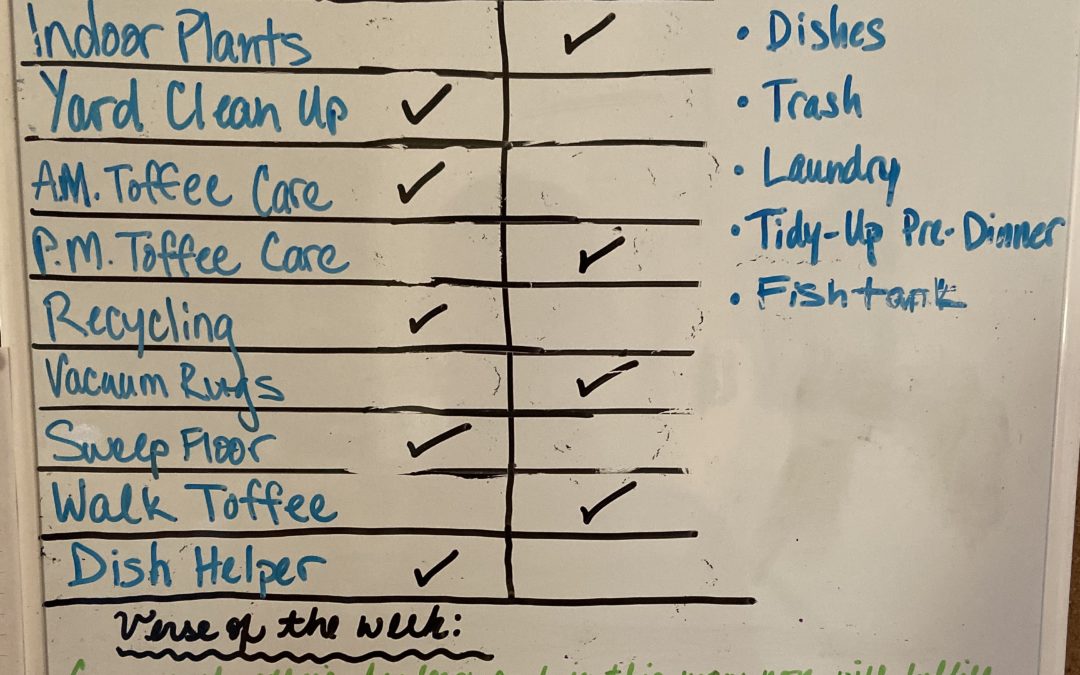 Indoor Plants ✓
Yard Clean Up ✓
A.M. Toffee Care ✓
P.M. Toffee Care ✓
Recycling ✓
Vacuum Rugs ✓
Sweep Floor ✓
Walk Toffee ✓
Dish Helper ✓
• Dishes
• Trash
• Laundry
• Tidy-Up Pre-Dinner
• Fishtank
Verse of the week: